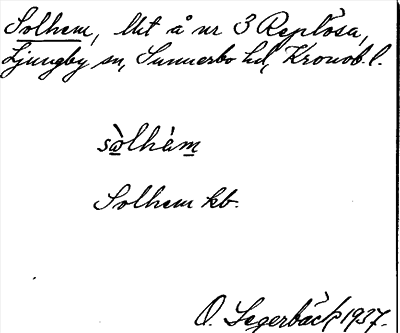 Solhem, lht å nr 3 Replösa,
Ljungby sn, Sunnerbo hd, Kronob. l.
sòlhèm
Solhem kb.
O. Segerbäck 1937.